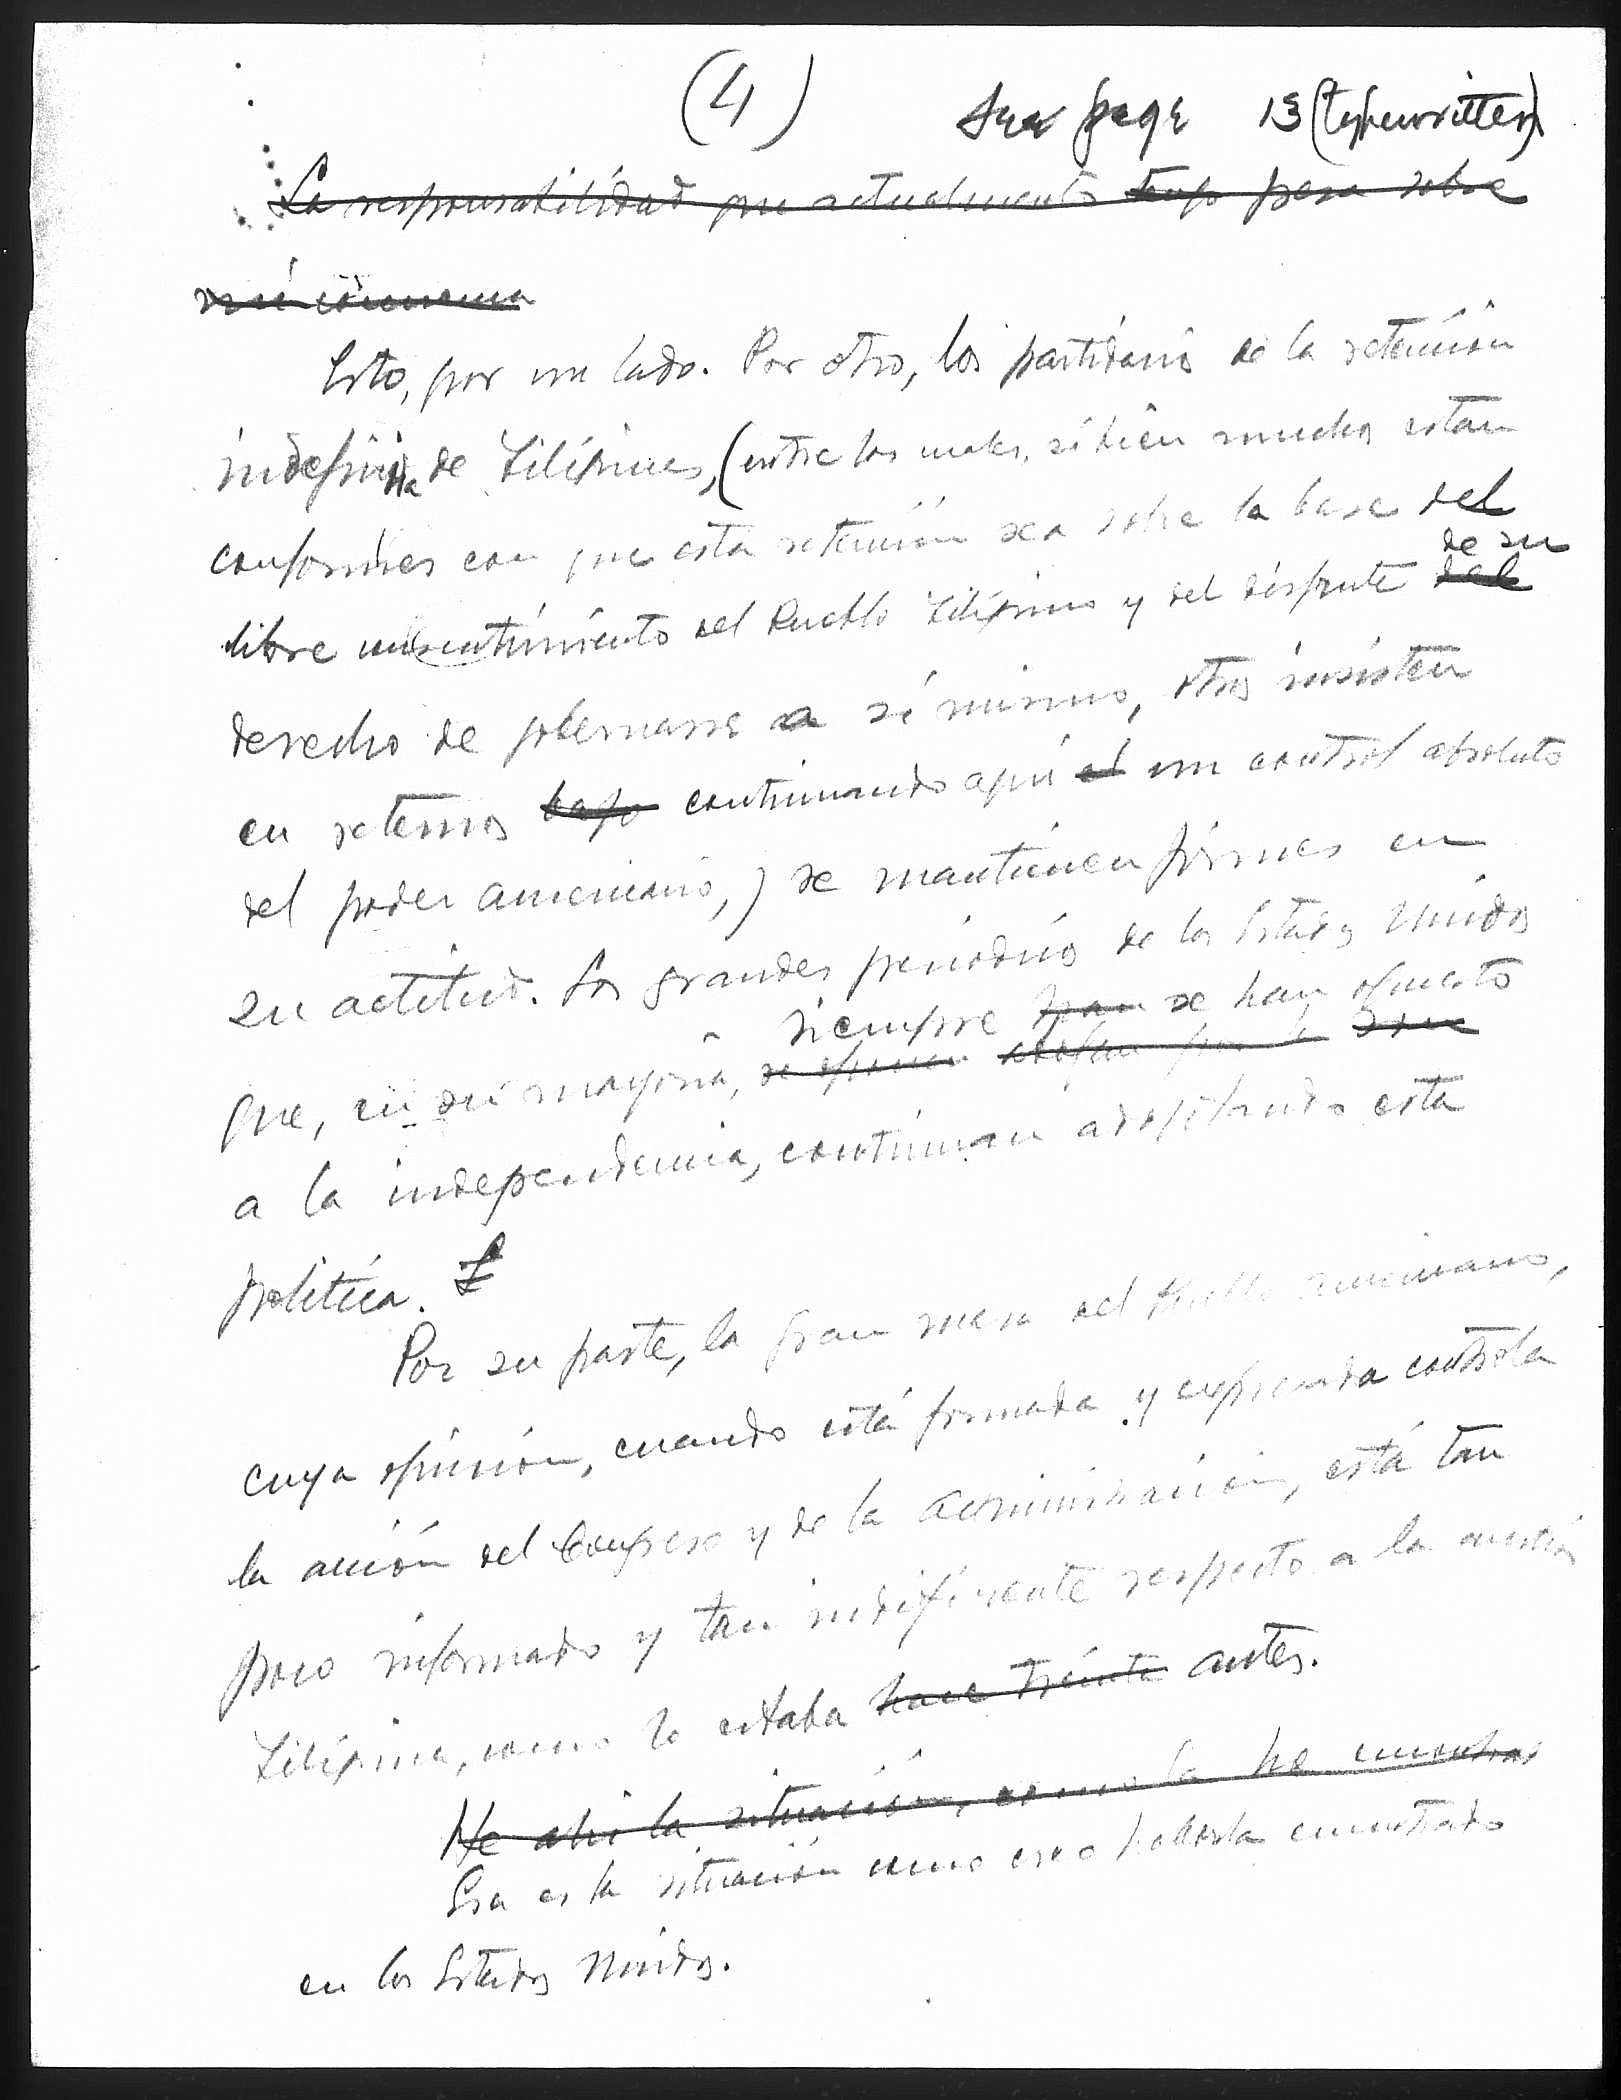 (4)
See page 13 (typewritten)
La responsabilidad que actualmente tengo pesa sobre
Esto, por un lado. Por otro, los partidarios de la retención
indefinida de Filipinas, (entre los cuales, si bien muchos estan
conformes con que esta retención sea sobre la base del
libre consentimiento del Pueblo Filipino y del disfrute del de su
derecho de gobernarse a si mismo, otros insisten
en reternos bajo continuando aqui el un control absoluto
del poder americano,) se mantienen firmes en
su actitud. Los grandes periódicos de los Estados Unidos
siempre han se han opuesto
que, en su mayoria, se oponen
a la independencia, continuan adoptando esta
politica.
Por su parte, la gran masa del Pueblo Americano,
cuya opinión, cuando está formada y expresada controla
la acción del Congreso y de la Administración, está tan
poco informado y tan indiferente respecto a la cuestión
Filipina, como lo estaba hace treinta antes.
He ahi la situación, como la he encontrado
Esa es la situación como creo haberla encontrado
en los Estados Unidos.